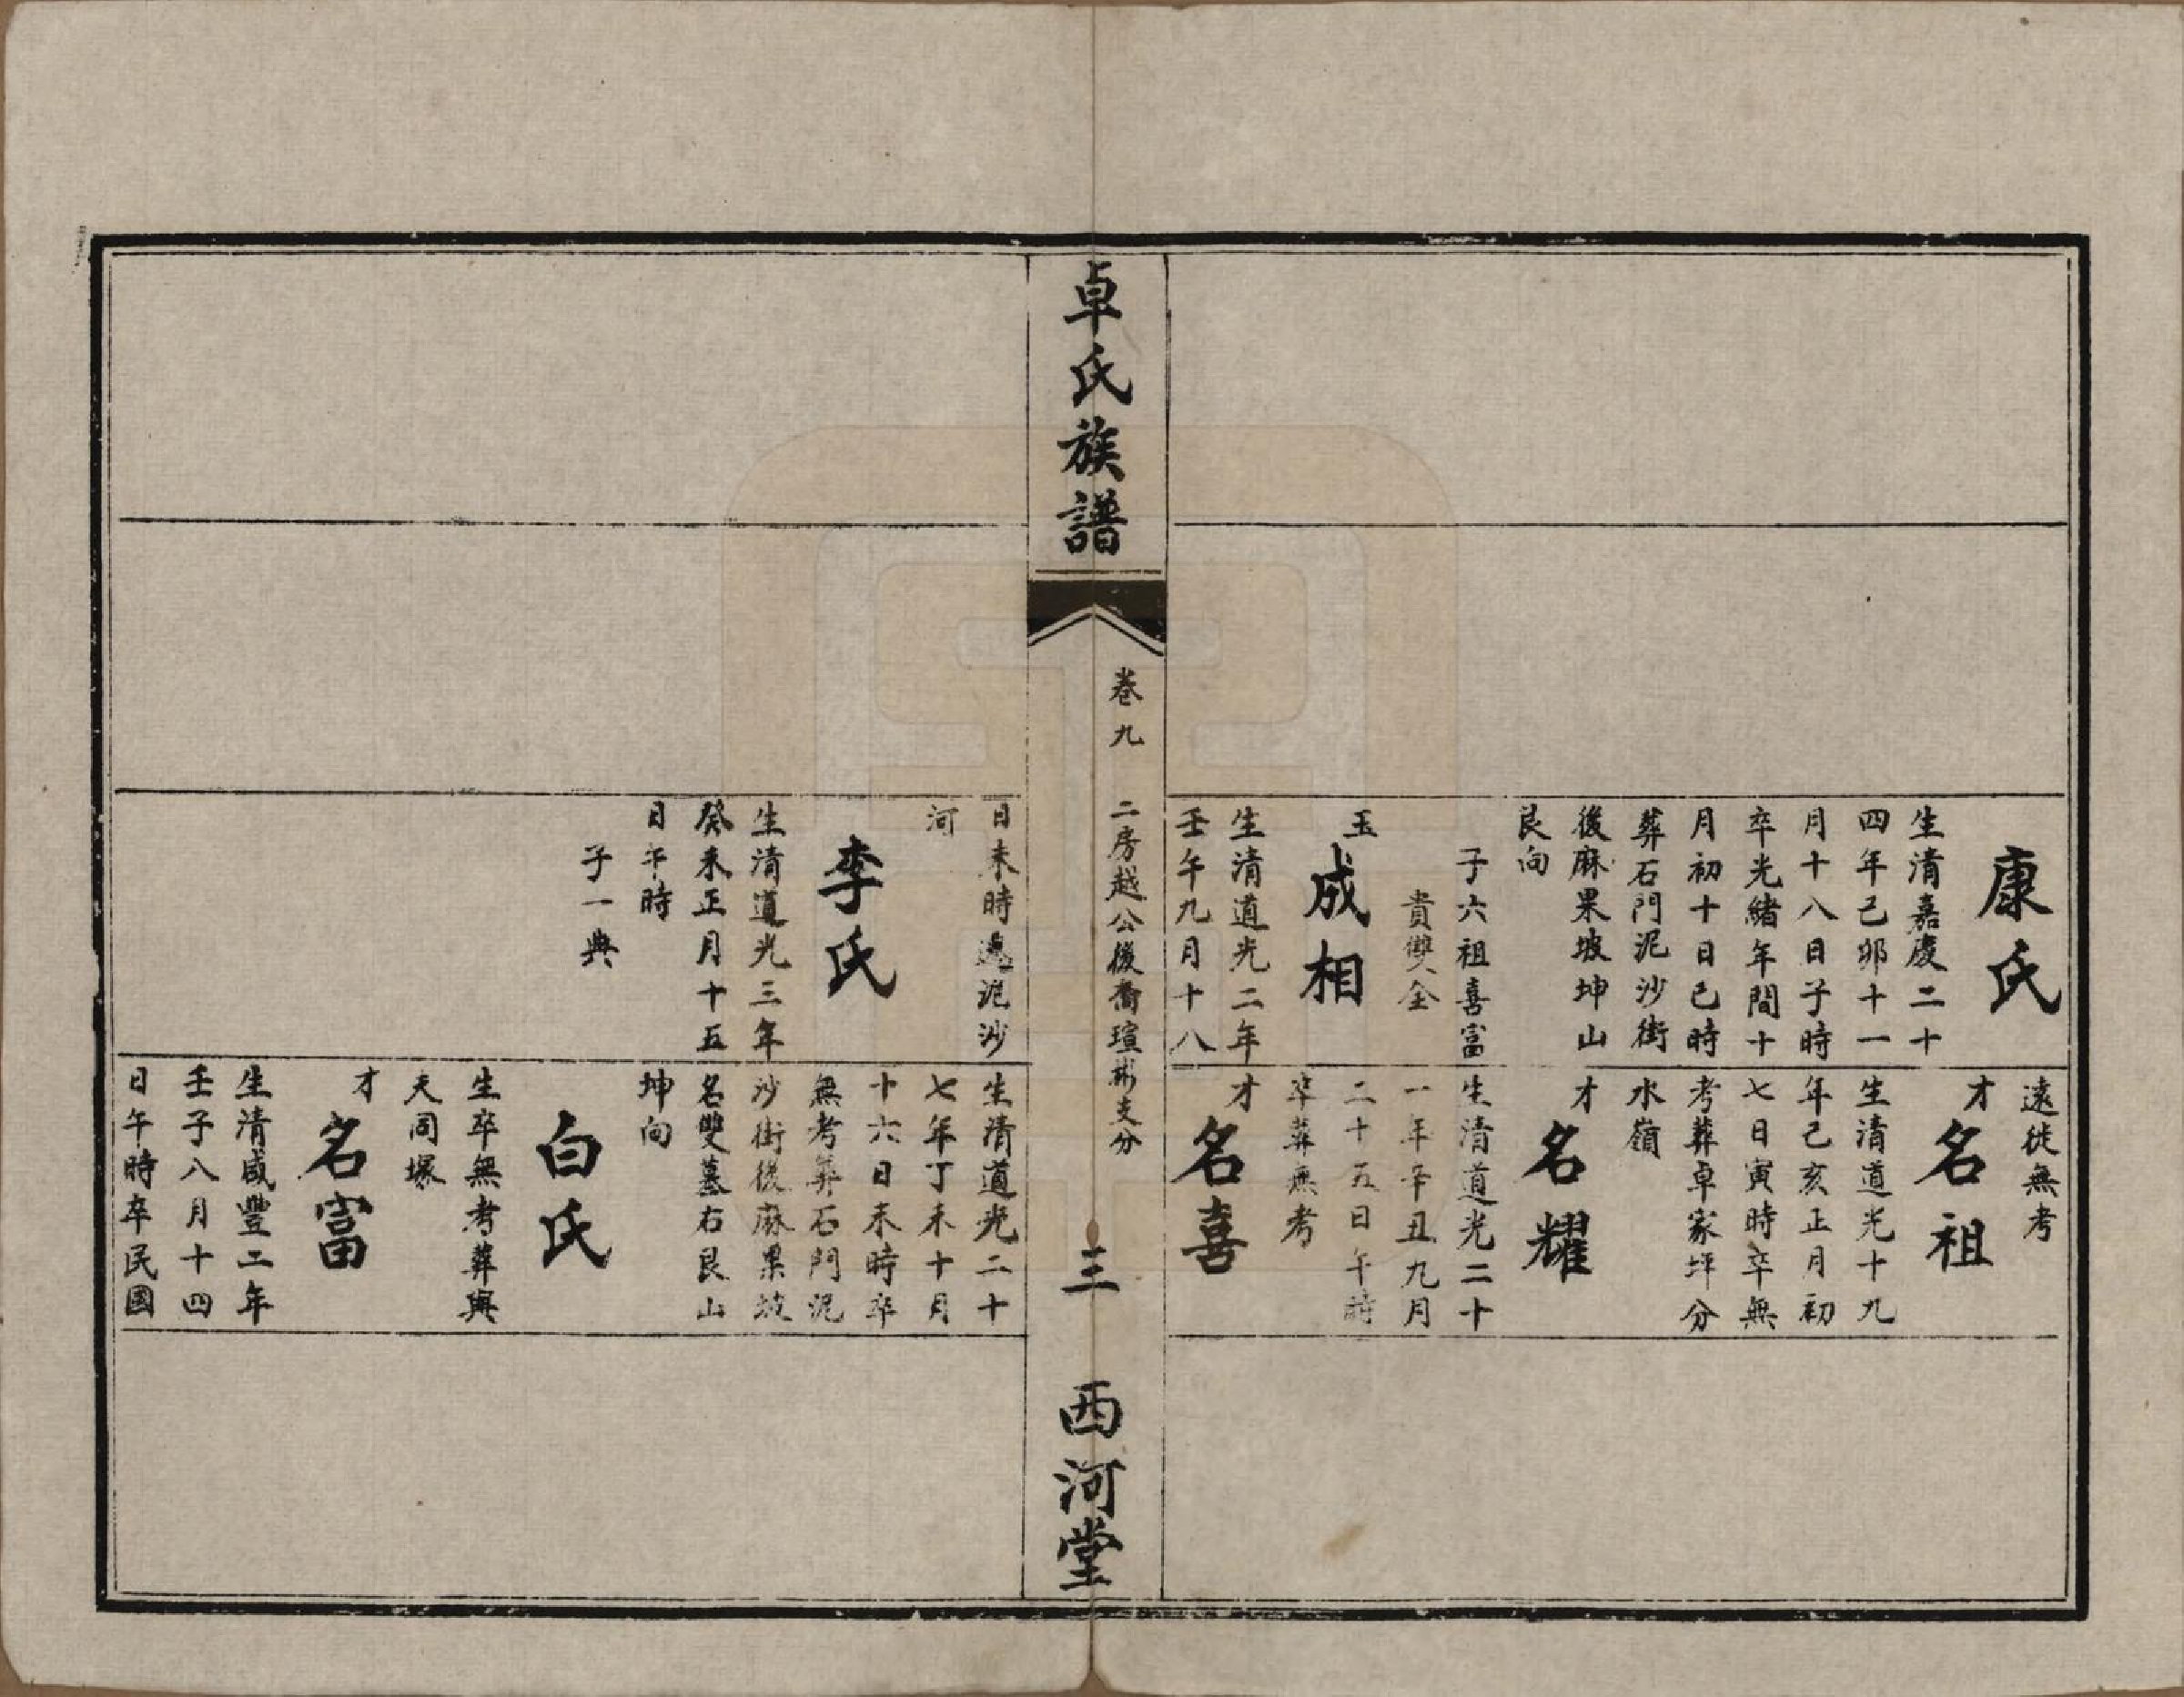 康氏
生清嘉慶二十
四年己卯十一
月十八日子時
卒光緒年間十
月初十日巳時
葬石門泥沙街
後麻果坡坤山
艮向
子六祖喜富
貴雙全
玉
成相
生清道光二年
壬午九月十八
遠徙無考
才
名祖
生清道光十九
年己亥正月初
七日寅時卒無
考葬卓家坪分
水嶺
才
名耀
生清道光二十
一年辛丑九月
二十五日午時
卒葬無考
才
名喜
卓氏族譜
卷九
二房越公後裔瑄彬支分
三
西河堂
日未時遷泥沙
河
李氏
生清道光三年
癸未正月十五
日午時
子一典
生清道光二十
七年丁未十月
十六日未時卒
無考葬石門泥
沙街後麻果坡
名雙墓右艮山
坤向
白氏
生卒無考葬與
夫同塚
才
名富
生清咸豐二年
壬子八月十四
日午時卒民國